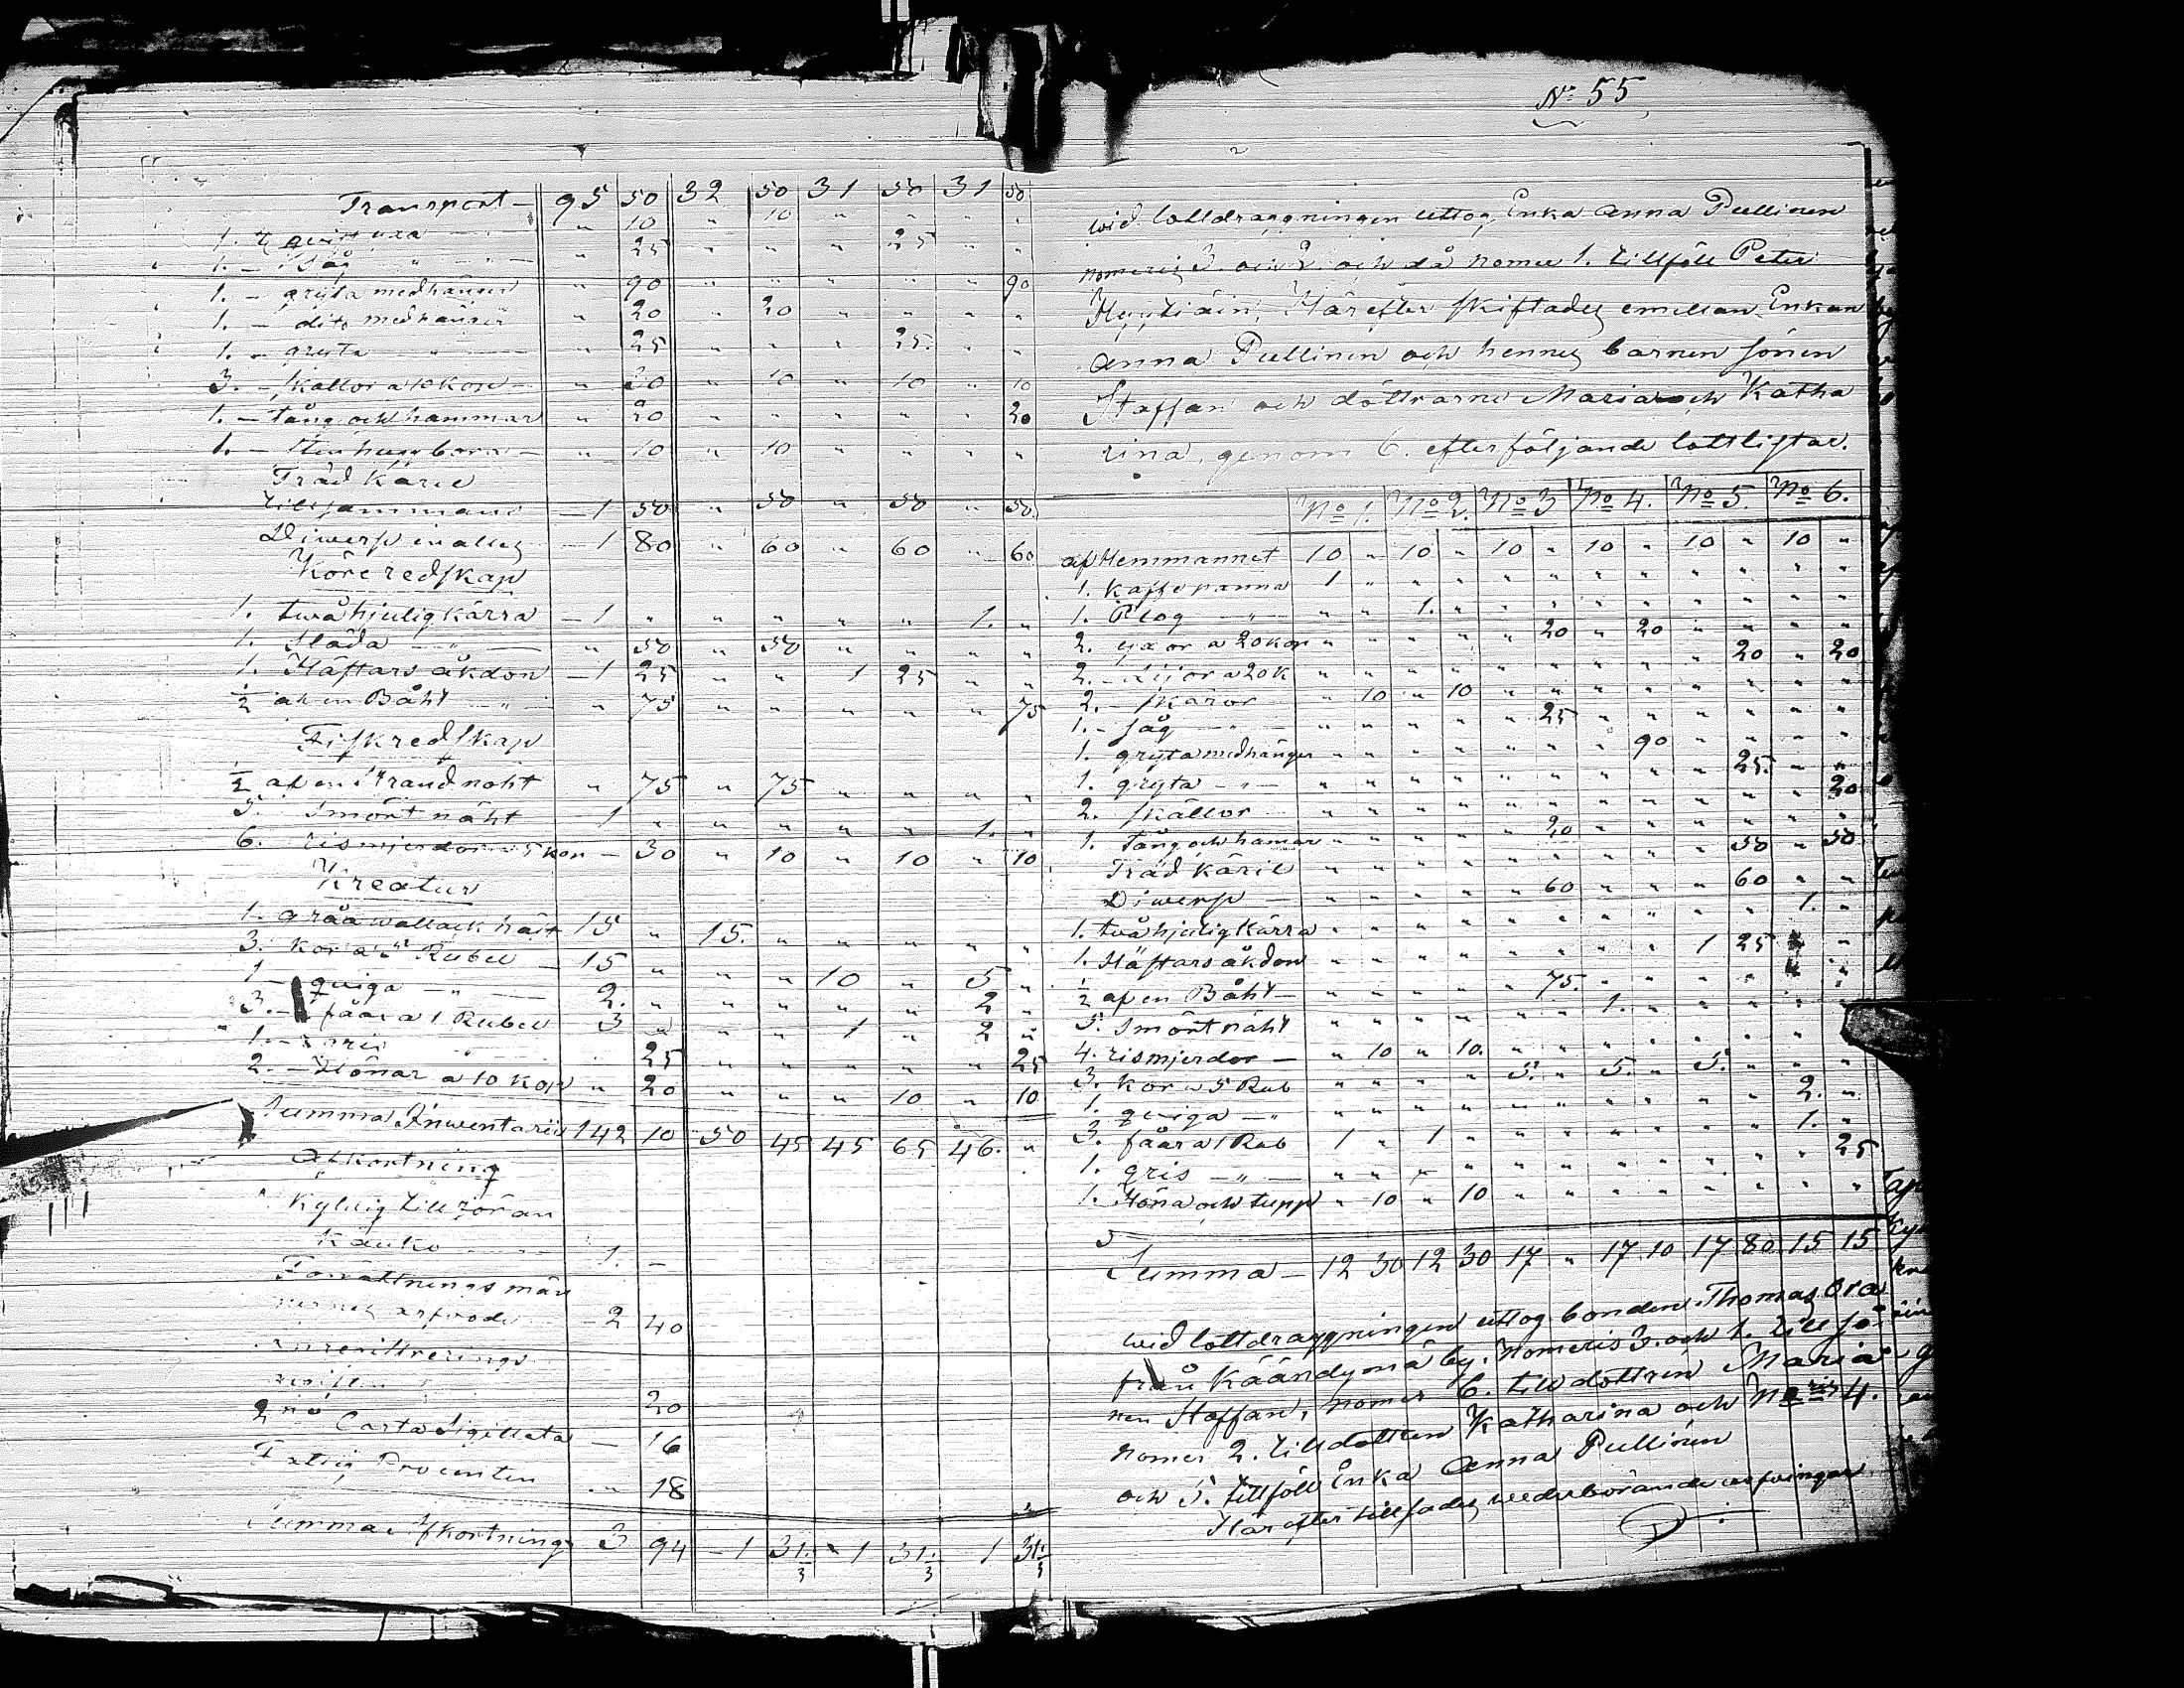 Transport – 95 50 32 50 31 50 31 50
1. qvist yxa " 10 " 10 " " " "
1. – Såg " 25 " " " 25 " "
1. – gryta med hänger " 90 " " " " " 90
1. – dito med hänger " 20 " 20 " " " "
1. – gryta " 25 " " " 25. " "
3. – skällor a 10 kop – " 30 " 10 " 10 " 10
1. – Tång och hammar " 20 " " " " " 20
1. – " 10 " 10 " " " "
Träd Käril
tillsammans – 1 50 " 50 " 50 " 50
Diwerse in alles – 1 80 " 60 " 60 " 60
Köreredskap
1. twåhjulig kärra – 1 " " " " " 1. "
1. Släda – " – " 50 " 50 " " " "
1. Häftars åkdon – 1 25 " " 1 25 " "
1/2 af en Båht – " – " 75 " " " " " 75
Fiskredskap
1/2 af en Strandnoht " 75 " 75 " " " "
5. Smört näht 1 " " " " " 1. "
6. rismjerdor a 5 kop – 30 " 10 " 10 " 10
Kreatur
1. gråa wallack häst 15 " 15. " " " " "
3. kor a 5 Rubel – 15 " " " 10 " 5 "
1 – qviga – " – 2. " " " " " 2 "
3. – fåår a 1 Rubel 3 " " " 1 " 2 "
1. – gris 25 " " " " " 25
2. – Hönar a 10 kop " 20 " " " 10 " 10
Summa Inwentarii 142 10 50 45 45 65 46. "
Afkortning
Kyllig till Jöran
Kauko 1. –
Förrättnings män
nernes arfvode – 2 40
20
2 no Carta Sigillata – 16
Fattig Procenten " 18
Summa Afkortning 3 94 – 1 31 1/3 1 31 1/3 1 31 1/3
No 55
wid lottdraggningen uttog Enka Anna Pullinen
nomeris 3. och 2. och då nomer 1. tillföll Peter
Hyytiäin, Härefter skiftades emellan Enkan
Anna Pullinen och hennes barnen sonen
Staffan och döttrarne Maria och Katha
rina, genom 6. efterföljande lottlistar.
No 1. No 2. No 3 No 4. No 5. No 6.
af Hemmannet 10 " 10 " 10 " 10 " 10 " 10 "
1. Kaffepanna 1 " " " " " " " " " " "
1. Plog – " – " " 1. " " " " " " " " "
2. yxor a 20 kop " " " " " 20 " 20 " " " "
2. – lijor a 20 K " " " " " " " " " 20 " 20
2. – skäror " 10 " 10 " " " " " " " "
1. – såg – " – " " " " " 25 " " " " " "
1. gryta med hänger " " " " " " " 90 " " " "
1. gryta – " – " " " " " " " " " 25. " "
2. skällor " " " " " " " " " " " 20
1. Tång och hamar " " " " " 20 " " " " " "
Träd Käril " " " " " " " " " 50 " 50
Diwerse – " " " " " 60 " " " 60 " "
1. twåhjulig Kärra " " " " " " " " " " 1. "
1. Häftars åkdon " " " " " " " " 1 25 " "
1/2 af en Båht – " " " " " 75. " " " " " "
5. Smört näht " " " " " " 1. " " " " "
4. rismjerdor – " 10 " 10. " " " " " " " "
3. kor a 5 Rub " " " " 5. " 5. " 5. " " "
1. qviga – " " " " " " " " " " " 2. "
3. fåår a 1 Rub 1 " 1 " " " " " " " 1. "
1. gris – " – " " " " " " " " " " " 25
1. Höna och tupp " 10 " 10 " " " " " " " "
Summa – 12 30 12 30 17 " 17 10 17 80 15 15
wid lottdraggningen uttog bonden Thomas Ora
från Käändymä by. Nomeris 3. och 1. till so
nen Staffan, nomer 6. till dottren Maria
nomer 2. till dottren Katharina och No ris 4.
och 5. tillföll Enka Anna Pullinen
Härefter tillsades wederbörande arfvingar